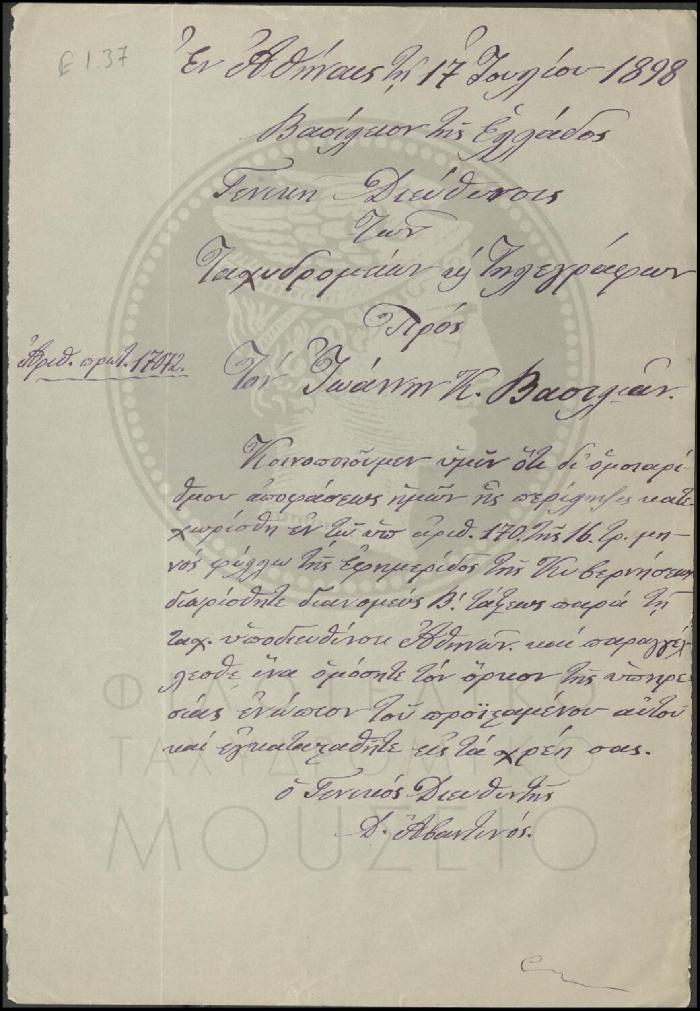 E 1.37
Ἐν Ἀθήναις τῇ 17 Ἰουλίου 1898
Βασίλειον τῆς Ἑλλάδος
Γενικὴ Διεύθυνσις
τῶν
Ταχυδρομείων κỳ Τηλεγράφων
Πρὸς
Ἀριθ. πρωτ. 17072.
Τὸν Ἰωάννην Κ. Βασιλ
Κοινοποιοῦμεν ὑμῖν ὅτι δι' ὁμοιαρί
θμου ἀποφάσεως ἡμῶν ἧς περίληψις κατε
χωρίσθη ἐν τῷ ὑπ ἀριθ. 170. τῆς 16. τρ. μη-
νός φύλλῳ τῆς Ἐφημερίδος τῆς Κυβερνήσεως
διωρίσθητε διανομεύς Β΄. τάξεως παρά τῇ
ταχ. ὑποδιευθύνσει Ἀθηνῶν. καί παραγγέλ
λεσθε ἵνα ὀμόσητε τόν ὅρκον τῆς ὑπηρε
σίας ἐνώπιον τοῦ προϊσταμένου αὐτοῦ
καί ἐγκατασταθῆτε εἰς τά χρέη σας.
ὁ Γενικός Διευθυντής
Δ. Ἀβαντινός.
ΦΙΛΟΤΕΛΙΚΟ
ΤΑΧΥΔΡΟΜΙΚΟ
ΜΟΥΣΕΙΟ